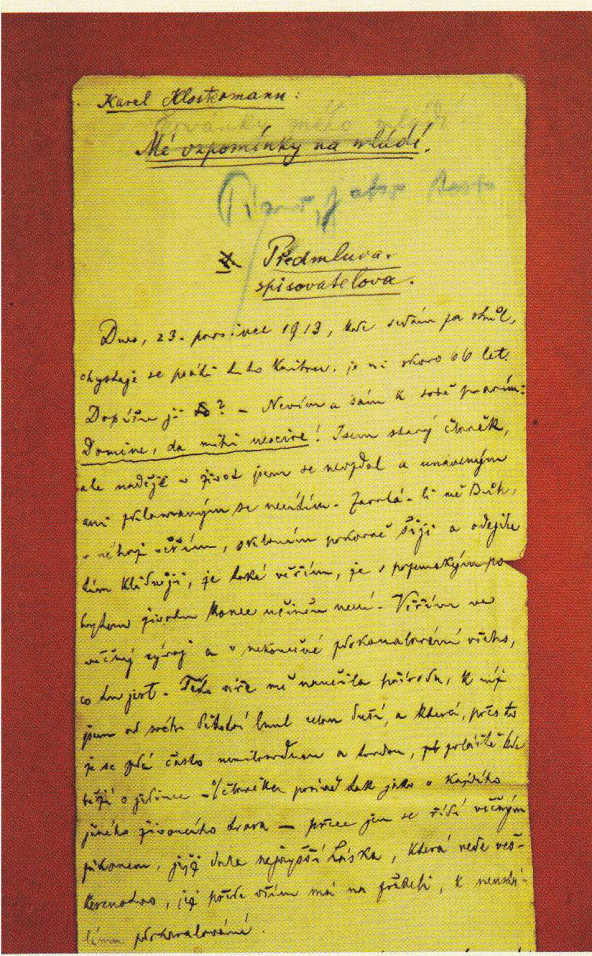 Karel Klostermann:
mého mládí
Mé vzpomínky na mládí.
Předmluva
spisovatelova.
Dnes, 23. prosince 1913, kdy sedám za stůl,
chystaje se psáti tuto knihu, je mi skoro 66 let.
Dopíšu ji? – Nevím a sám k sobě pravím:
Domine, da mihi nescire! Jsem starý člověk,
ale naděje v život jsem se nevzdal a unaveným
ani zklamaným se necítím. Zavolá-li mě Bůh,
v něhož věřím, skloním pokorně šíji a odejdu
tím klidněji, že také věřím, že s pozemským po
bytem životu konce učiněno není. Věřím ve
věčný vývoj a v nekonečné zdokonalování všeho,
co tu jest. Této víře mě naučila příroda, k níž
jsem od svého dětství lnul celou duší, a která, přes to
že se zdá často nemilosrdnou a tvrdou, zvláště kde
běží o jedince – člověka právě tak jako o každého
jiného živoucího tvora – přece jen se řídí věčným
zákonem, jejž dala nejvyšší Láska, která vede veš-
kerenstvo, jež přede vším má na zřeteli, k
zdokonalování.